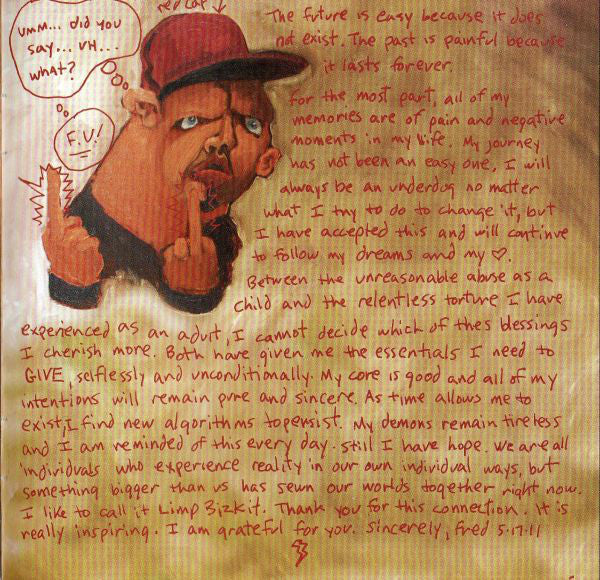 red cap
UMM... did you
say... UH...
what?
F.U.!
The future is easy because it does
not exist. The past is painful because
it lasts forever.
For the most part, all of my
memories are of pain and negative
moments in my life. My journey
has not been an easy one, I will
always be an underdog no matter
what I try to do to change it, but
I have accepted this and will continue
to follow my dreams and my ♡.
Between the unreasonable abuse as a
child and the relentless torture I have
experienced as an adult, I cannot decide which of thes blessings
I cherish more. Both have given me the essentials I need to
GIVE, selflessly and unconditionally. My core is good and all of my
intentions will remain pure and sincere. As time allows me to
exist, I find new algorithms to persist. My demons remain tireless
and I am reminded of this every day. Still I have hope. We are all
individuals who experience reality in our own individual ways, but
something bigger than us has sewn our worlds together right now.
I like to call it Limp Bizkit. Thank you for this connection. It is
really inspiring. I am grateful for you. Sincerely, Fred 5.17.11